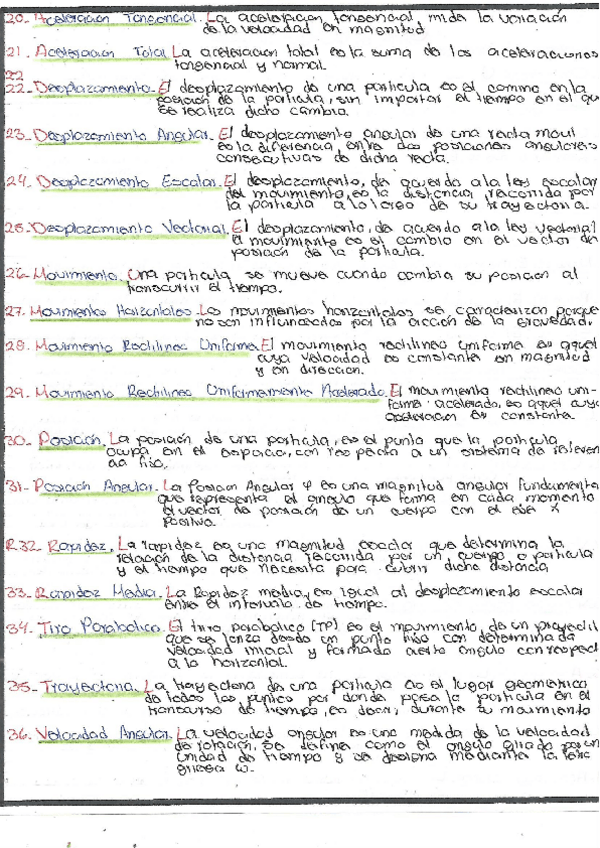 20. Aceleración Tangencial. La aceleración tangencial, mide la variación
de la velocidad en magnitud
21. Aceleración Total La aceleración total es la suma de las aceleraciones
tangencial y normal.
22
22. Desplazamiento. El desplazamiento de una particula es el cambio en la
posición de la particula, sin importar el tiempo en el que
se realiza dicho cambio.
23. Desplazamiento Angular. El desplazamiento angular de una recta movil
es la diferencia, entre dos posiciones angulares
consecutivas de dicha recta.
24. Desplazamiento Escalar. El desplazamiento, de acuerdo a la ley escalar
del movimiento, es la distancia recorrida por
la particula a lo largo de su trayectoria.
25. Desplazamiento Vectorial. El desplazamiento, de acuerdo a la ley vectorial
el movimiento es el cambio en el vector de
posición de la particula.
26. Movimiento. Una particula se mueve cuando cambia su posición al
transcurrir el tiempo.
27. Movimientos Horizontales. Los movimientos horizontales se caracterizan porque
no son influenciados por la acción de la gravedad.
28. Movimiento Rectilineo Uniforme. El movimiento rectilineo uniforme es aquel
cuya velocidad es constante en magnitud
y en dirección.
29. Movimiento Rectilineo Uniformemente Acelerado. El movimiento rectilineo uni-
forme acelerado, es aquel cuya
aceleración es constante.
30. Posición. La posición de una particula, es el punto que la particula
ocupa en el espacio, con respecto a un sistema de referen
cia fijo.
31. Posición Angular. La Posición Angular φ es una magnitud angular fundamental
que representa el angulo que forma en cada momento
el vector de posición de un cuerpo con el eje x
positivo.
R.32 Rapidez. La rapidez es una magnitud escalar que determina la
relación de la distancia recorrida por un cuerpo o particula
y el tiempo que necesita para cubrir dicha distancia
33. Rapidez Media. La Rapidez media, es igual al desplazamiento escalar
entre el intervalo de tiempo.
34. Tiro Parabolico. El tiro parabolico (TP) es el movimiento, de un proyectil
que se lanza desde un punto fijo con determinada
velocidad inicial y formado cierto angulo con respecto
a la horizontal.
35. Trayectoria. La trayectoria de una particula es el lugar geometrico
de todos los puntos por donde pasa la particula en el
transcurso de tiempo, es decir, durante su movimiento
36. Velocidad Angular. La velocidad angular es una medida de la velocidad
de rotación. Se define como el angulo girado por un
unidad de tiempo y se designa mediante la letra
griega ω.